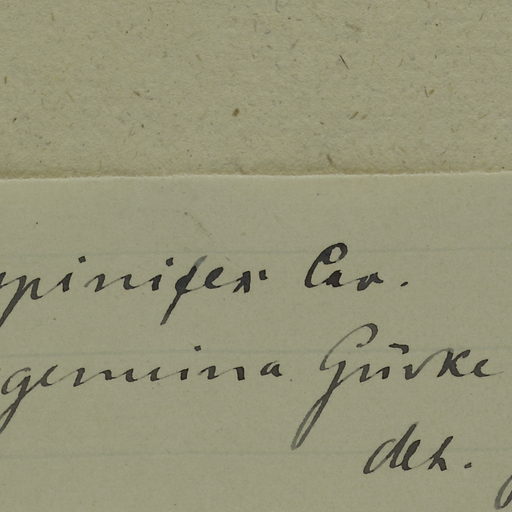 spinifex Cav.
genuina Gürke
det.